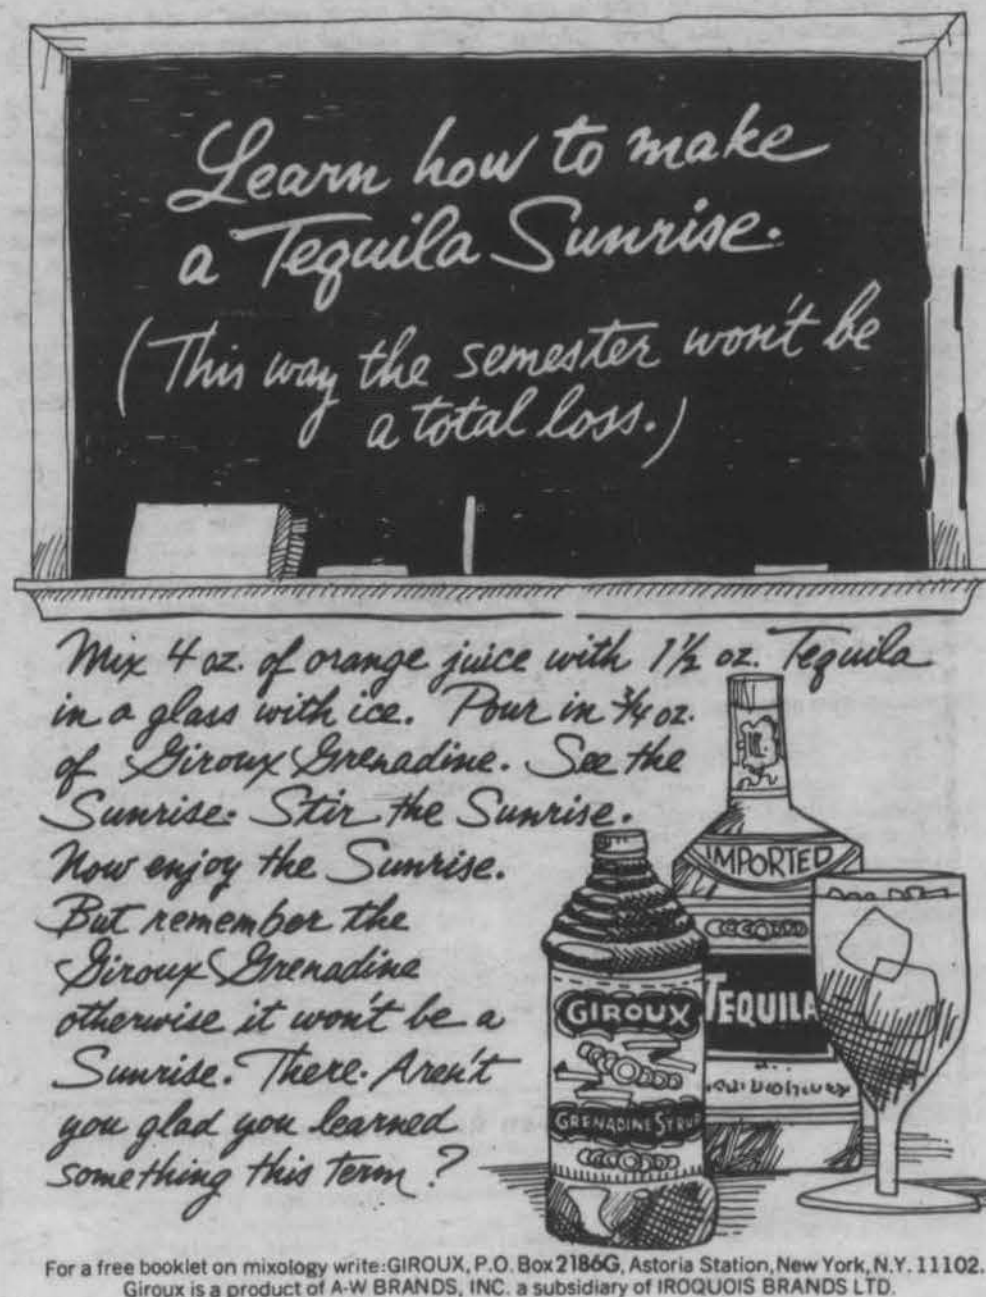 Learn how to make
a Tequila Sunrise.
(This way the semester won't be
a total loss.)
Mix 4 oz. of orange juice with 1½ oz. Tequila
in a glass with ice. Pour in ¾ oz.
of Giroux Grenadine. See the
Sunrise. Stir the Sunrise.
Now enjoy the Sunrise.
But remember the
Giroux Grenadine
otherwise it won't be a
Sunrise. There. Aren't
you glad you learned
something this term?
IMPORTED
TEQUILA
GIROUX
GRENADINE SYRUP
For a free booklet on mixology write: GIROUX, P.O. Box 2186G, Astoria Station, New York, N.Y. 11102.
Giroux is a product of A-W BRANDS, INC. a subsidiary of IROQUOIS BRANDS LTD.